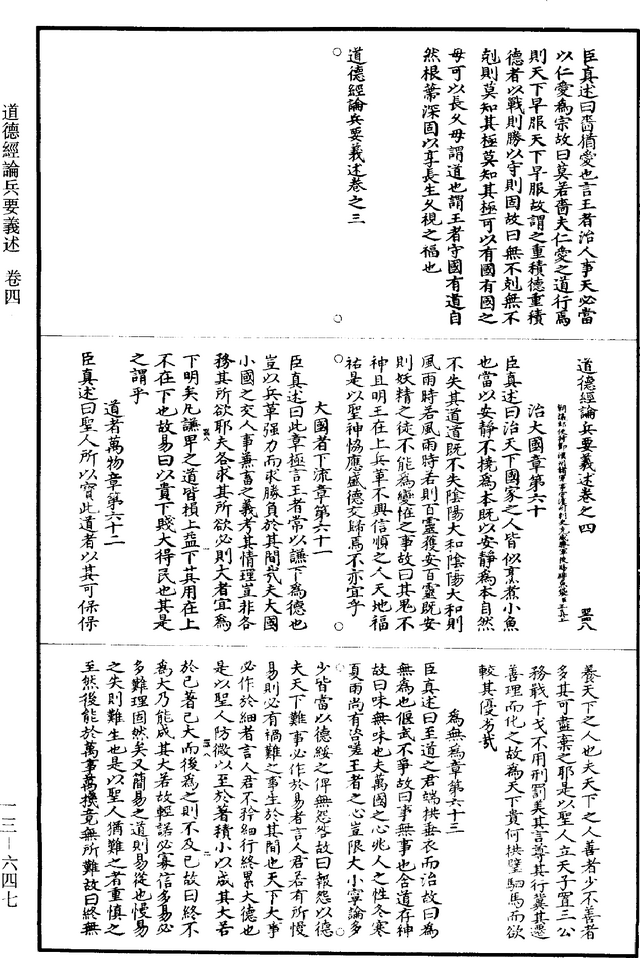 道德經論兵要義述　卷四
一三—六四七
臣真述曰嗇猶愛也言王者治人事天必當
以仁愛為宗故曰莫若嗇夫仁愛之道行焉
則天下早服天下早服故謂之重積德重積
德者以戰則勝以守則固故曰無不剋無不
剋則莫知其極莫知其極可以有國有國之
母可以長久母謂道也謂王者守國有道自
然根蔕深固以享長生久視之福也
道德經論兵要義述卷之三
道德經論兵要義述卷之四
治大國章第六十
臣真述曰治天下國家之人皆似烹煮小魚
也當以安靜不撓為本既以安靜為本自然
不失其道道既不失陰陽大和陰陽大和則
風雨時若風雨時若則百靈獲安百靈既安
則妖精之徒不能為變怪之事故曰其鬼不
神且明王在上兵革不興信順之人天地福
祐是以聖神恊應盛德交歸焉不亦宜乎
大國者下流章第六十一
臣真述曰此章極言王者常以謙下為德也
豈以兵革强力而求勝負於其間㢤夫大國
小國之交人事兼畜之義考其情理豈非各
務其所欲耶夫各求其所欲必則大者宜為
下明矣凡謙卑之道皆損上益下其用在上
不在下也故易曰以貴下賤大得民也其是
之謂乎
道者萬物章第六十二
臣真述曰聖人所以寶此道者以其可保保
養天下之人也夫天下之人善者少不善者
多其可盡棄之耶是以聖人立天子置三公
務戢干戈不用刑罰美其言尊其行冀其遷
善理而化之故為天下貴何拱璧駟馬而欲
較其優劣㢤
為無為章第六十三
臣真述曰王道之君端拱垂衣而治故曰為
無為也偃武不爭故曰事無事也含道存神
故曰味無味也夫萬國之心兆人之性冬寒
夏雨尚有咨嗟王者之心豈限大小寧論多
少皆當以德綏之俾無怨咎故曰報怨以德
夫天下難事必作於易者言人君若有所慢
易則必有禍難之事生於其間也天下大事
必作於細者言人君不矜細行終累大德也
是以聖人防微以至於著積小以成其大若
於已著已大而後為之則不及已故曰終不
為大乃能成其大若故輕諾必寡信多易必
多難理固然矣又簡易之道則易從也慢易
之失則難生也是以聖人猶難之者重慎之
至然後能於萬事萬機竟無所難故曰終無